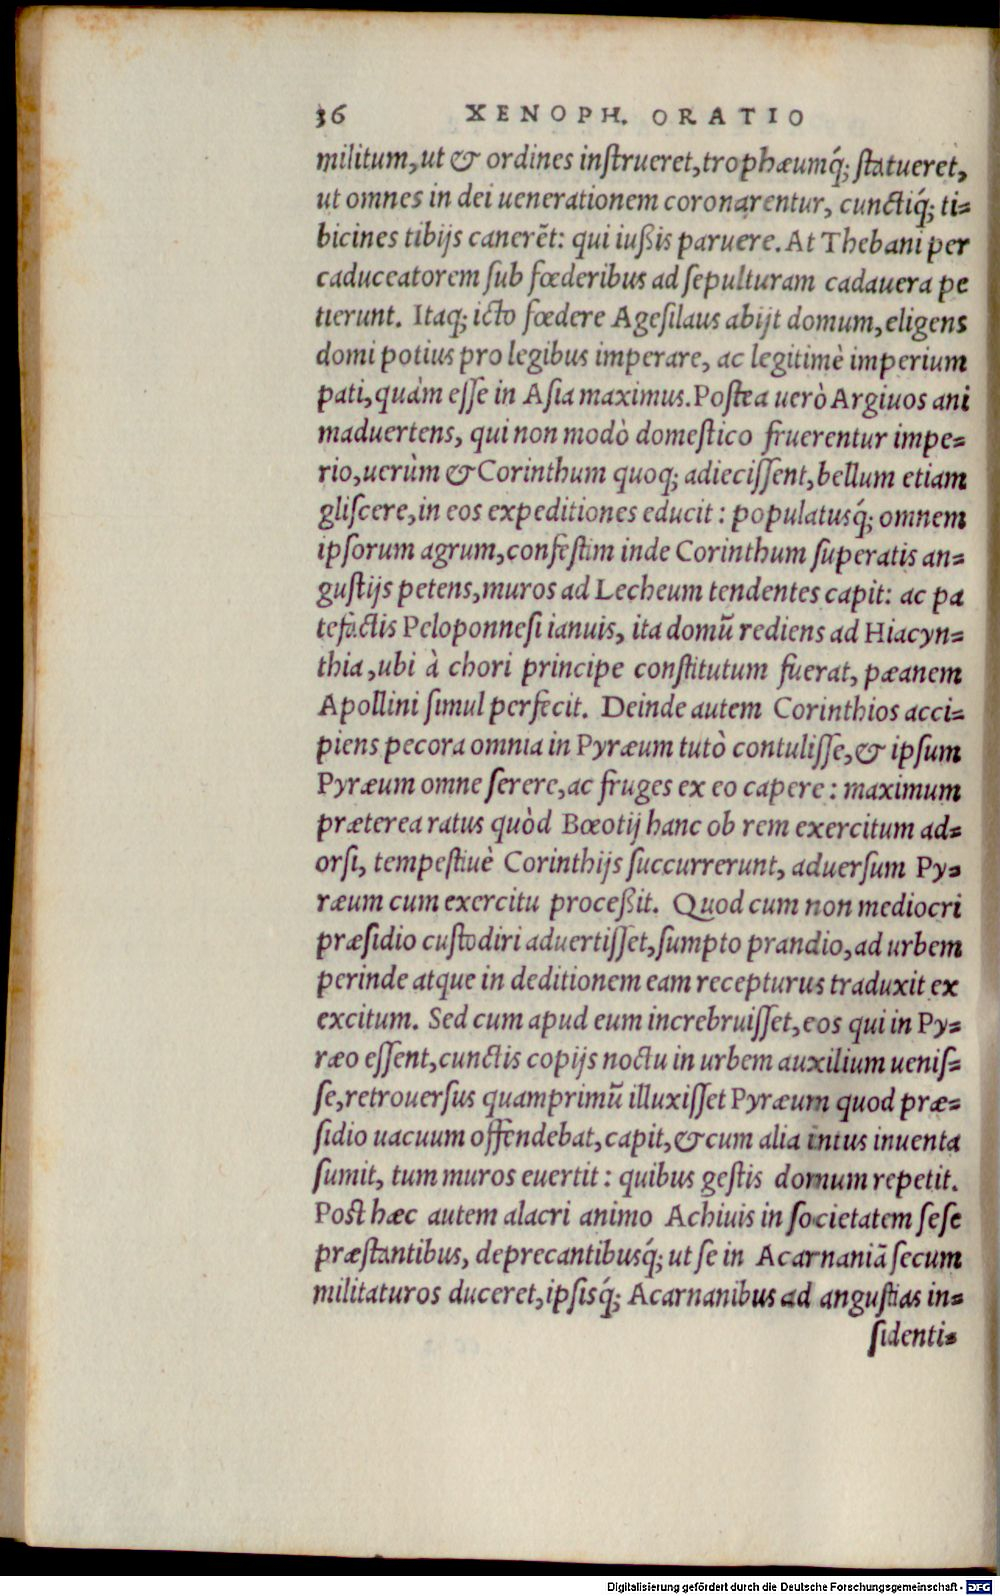 36 XENOPH. ORATIO
militum, ut & ordines instrueret, trophæumq́; statueret,
ut omnes in dei uenerationem coronarentur, cunctiq́; ti=
bicines tibijs canerẽt: qui iußis paruere. At Thebani per
caduceatorem sub fœderibus ad sepulturam cadauera pe
tierunt. Itaq; icto fœdere Agesilaus abijt domum, eligens
domi potius pro legibus imperare, ac legitimè imperium
pati, quàm esse in Asia maximus. Postea uerò Argiuos ani
maduertens, qui non modò domestico fruerentur impe=
rio, uerùm & Corinthum quoq; adiecissent, bellum etiam
gliscere, in eos expeditiones educit: populatusq́; omnem
ipsorum agrum, confestim inde Corinthum superatis an=
gustijs petens, muros ad Lecheum tendentes capit: ac pa
tefactis Peloponnesi ianuis, ita domũ rediens ad Hiacyn=
thia, ubi à chori principe constitutum fuerat, pæanem
Apollini simul perfecit. Deinde autem Corinthios acci=
piens pecora omnia in Pyræum tutò contulisse, & ipsum
Pyræum omne serere, ac fruges ex eo capere: maximum
præterea ratus quòd Bœotij hanc ob rem exercitum ad=
orsi, tempestiuè Corinthijs succurrerunt, aduersum Py=
ræum cum exercitu proceßit. Quod cum non mediocri
præsidio custodiri aduertisset, sumpto prandio, ad urbem
perinde atque in deditionem eam recepturus traduxit ex
excitum. Sed cum apud eum increbruisset, eos qui in Py=
ræo essent, cunctis copijs noctu in urbem auxilium uenis=
se, retrouersus quamprimũ illuxisset Pyræum quod præ=
sidio uacuum offendebat, capit, & cum alia intus inuenta
sumit, tum muros euertit: quibus gestis domum repetit.
Post hæc autem alacri animo Achiuis in societatem sese
præstantibus, deprecantibusq́; ut se in Acarnaniã secum
militaturos duceret, ipsisq́; Acarnanibus ad angustias in=
sidenti=
Digitalisierung gefördert durch die Deutsche Forschungsgemeinschaft - DFG